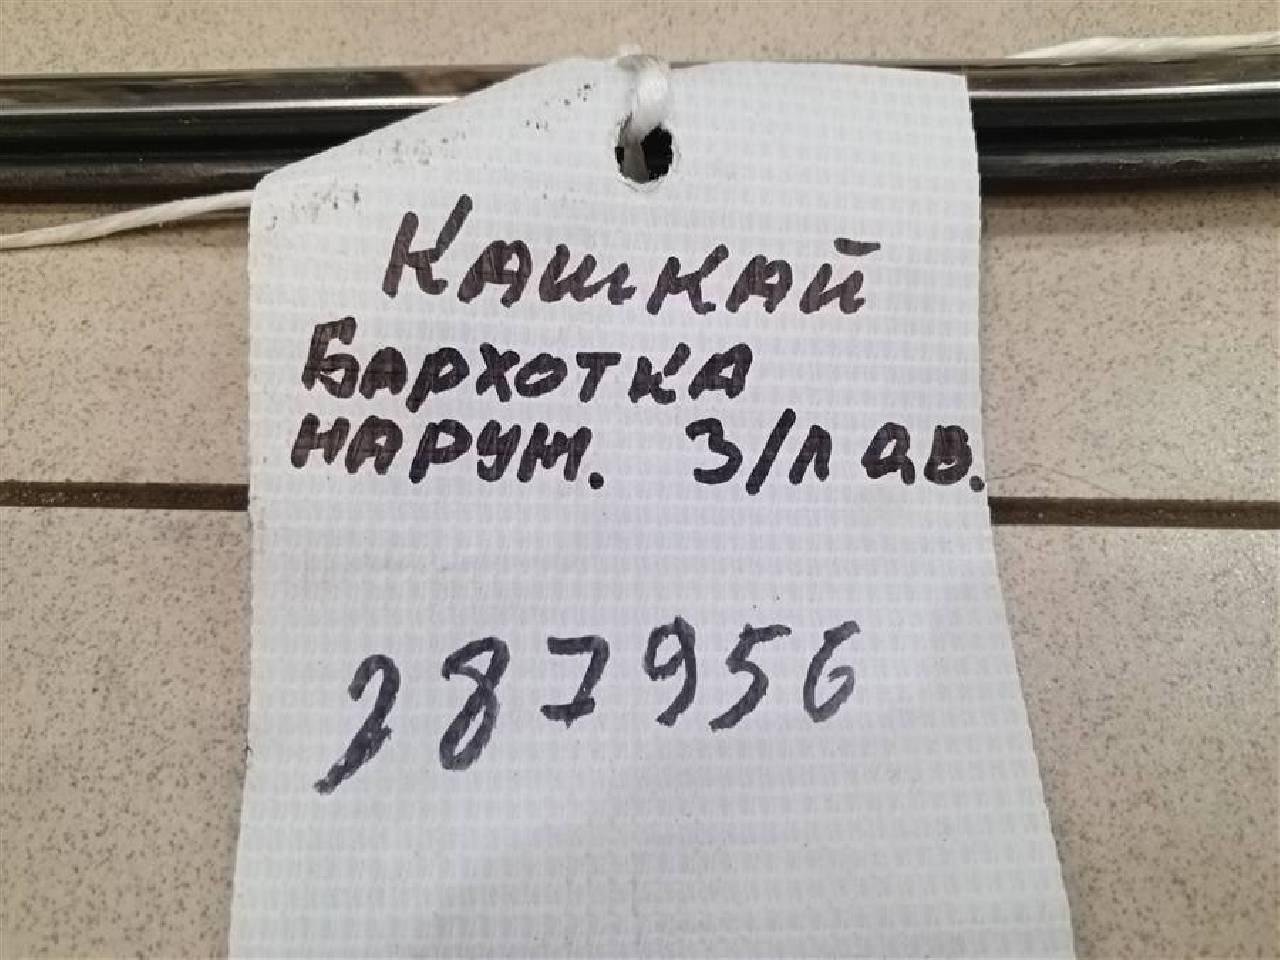 Кашкай
Бархотка
наруж. з/л дв.
287956